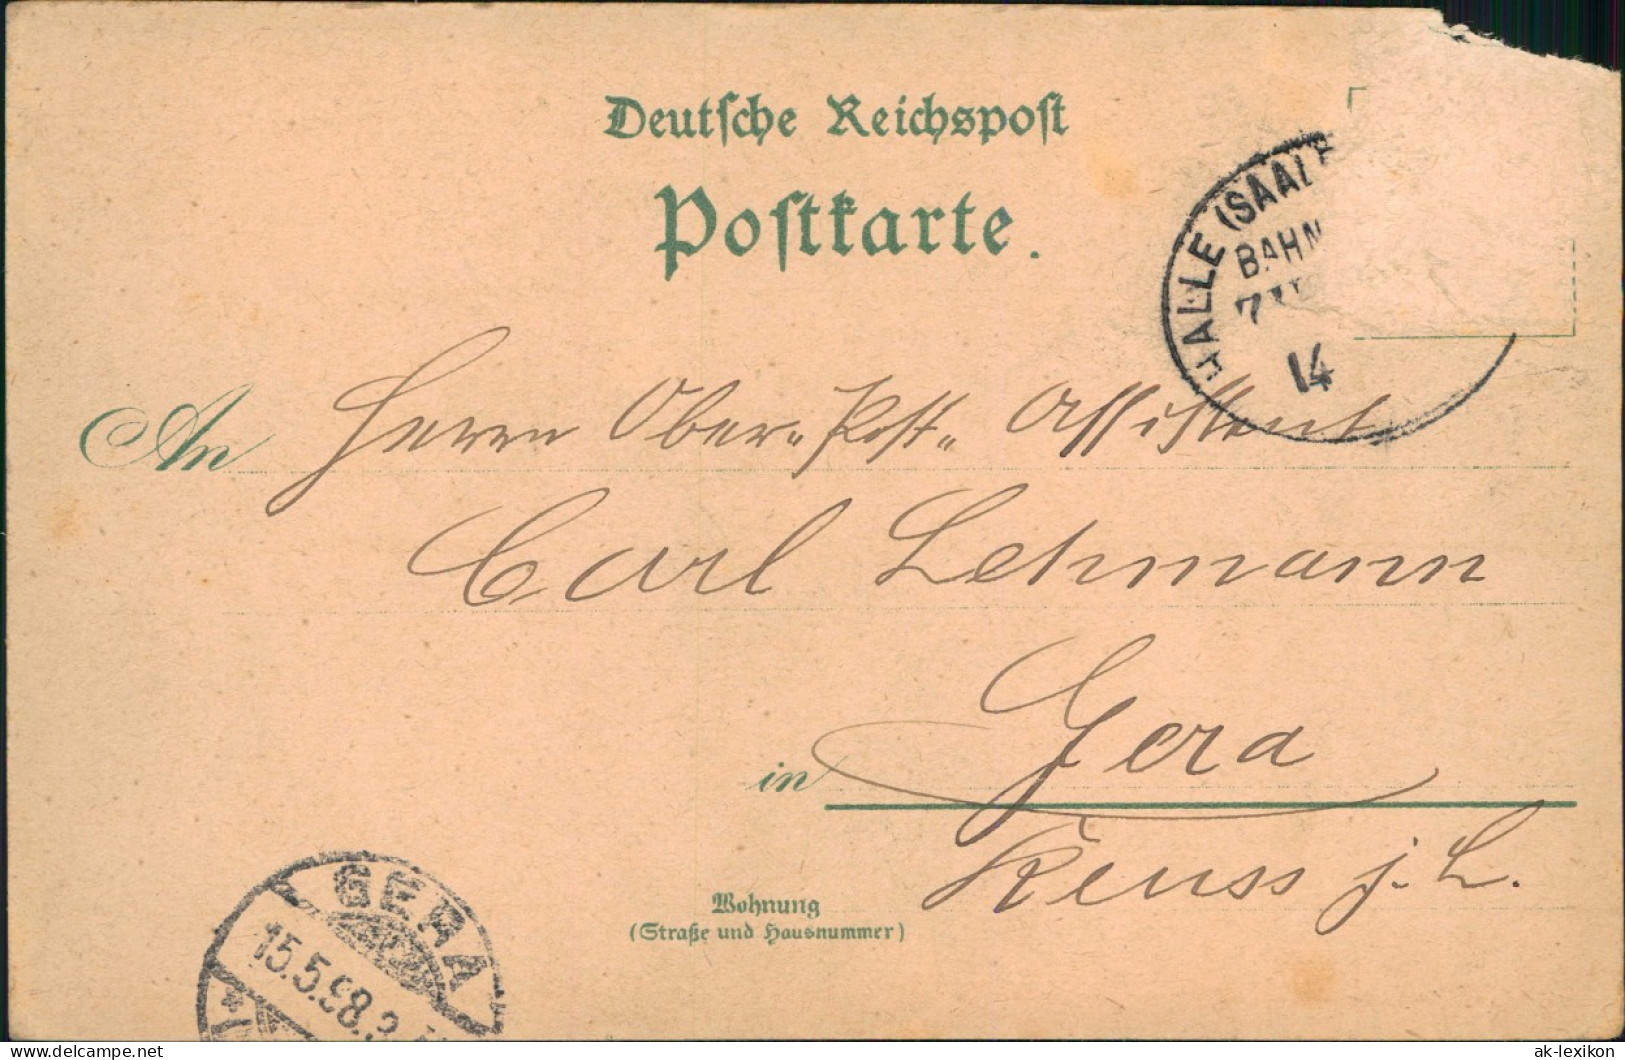 Deutsche Reichspost
Postkarte.
HALLE (SAALE
BAHN
14
An Herrn Ober-Post-Assistent
Carl Lehmann
in Gera
Reuss j. L.
Wohnung
(Straße und Hausnummer)
GERA
15.5.98.
delcampe.net
ak-lexikon